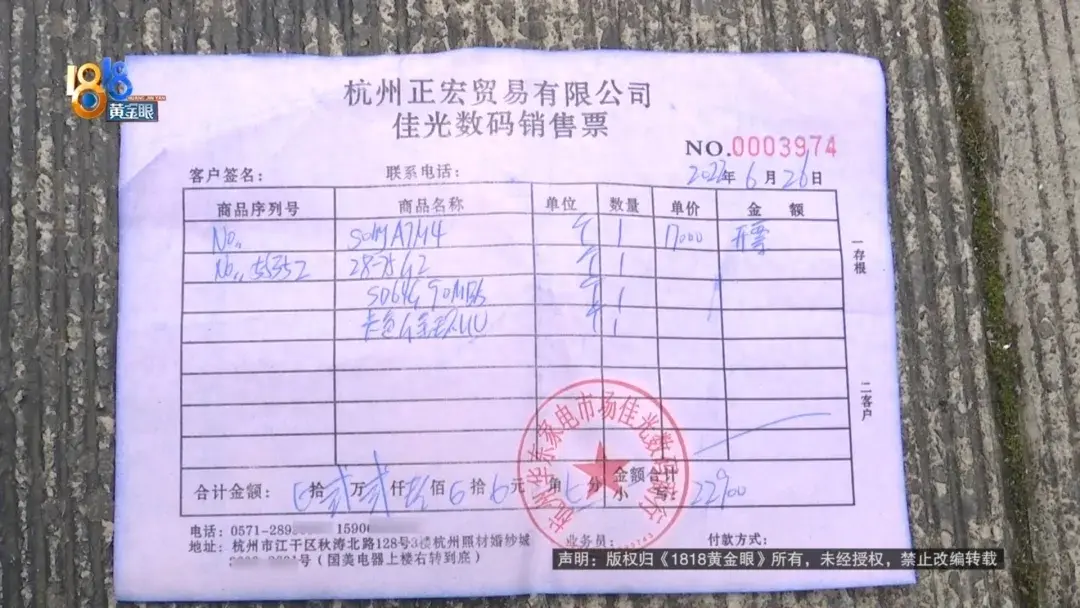 1818
黄金眼
杭州正宏贸易有限公司
佳光数码销售票
NO.0003974
客户签名: 联系电话: 2023年6月26日
商品序列号 商品名称 单位 数量 单价 金额
No. SonyA7M4 1 17000 开票
No. 28-75G2 1
SD64G 90MB 1
卡色金环UV 1
一存根
二客户
杭州华东家电市场佳光数码
合计金额: 拾贰万贰仟玖佰拾元角分 金额合计小写: 22900
电话: 0571-289 15906
地址: 杭州市江干区秋涛北路128号3楼杭州照材婚纱城
号(国美电器上楼右转到底)
业务员: 付款方式:
声明：版权归《1818黄金眼》所有，未经授权，禁止改编转载